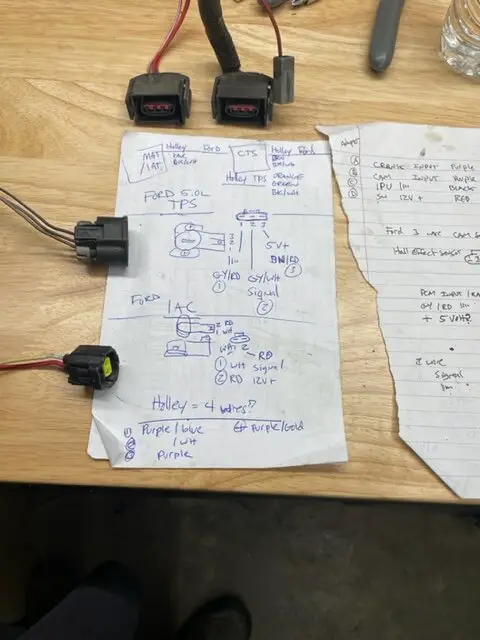 MAT/ IAT. Holley Ford
CTS Holley Ford
BK/WH
Holley TPS ORANGE
GREEN
BK/WH
FORD 5.0L
TPS
1 2 3
3
2
1
5V+
BN/RD
3
GY/RD
1
GY/WH
Signal
2
FORD
IAC
2 RD
1 WH
WH 2 RD
1 WH Signal
2 RD 12V+
Holley = 4 wires?
Purple/blue Purple/Gold
/WH
Purple
Adapter
A CRANK INPUT PURPLE
B CAM INPUT PURPLE
C BLACK
D SW 12V+ RED
Ford 3 wire CAM
Hall effect sensor
PCM INPUT
GY/RD
+ 5Volt?
2 wire
Signal